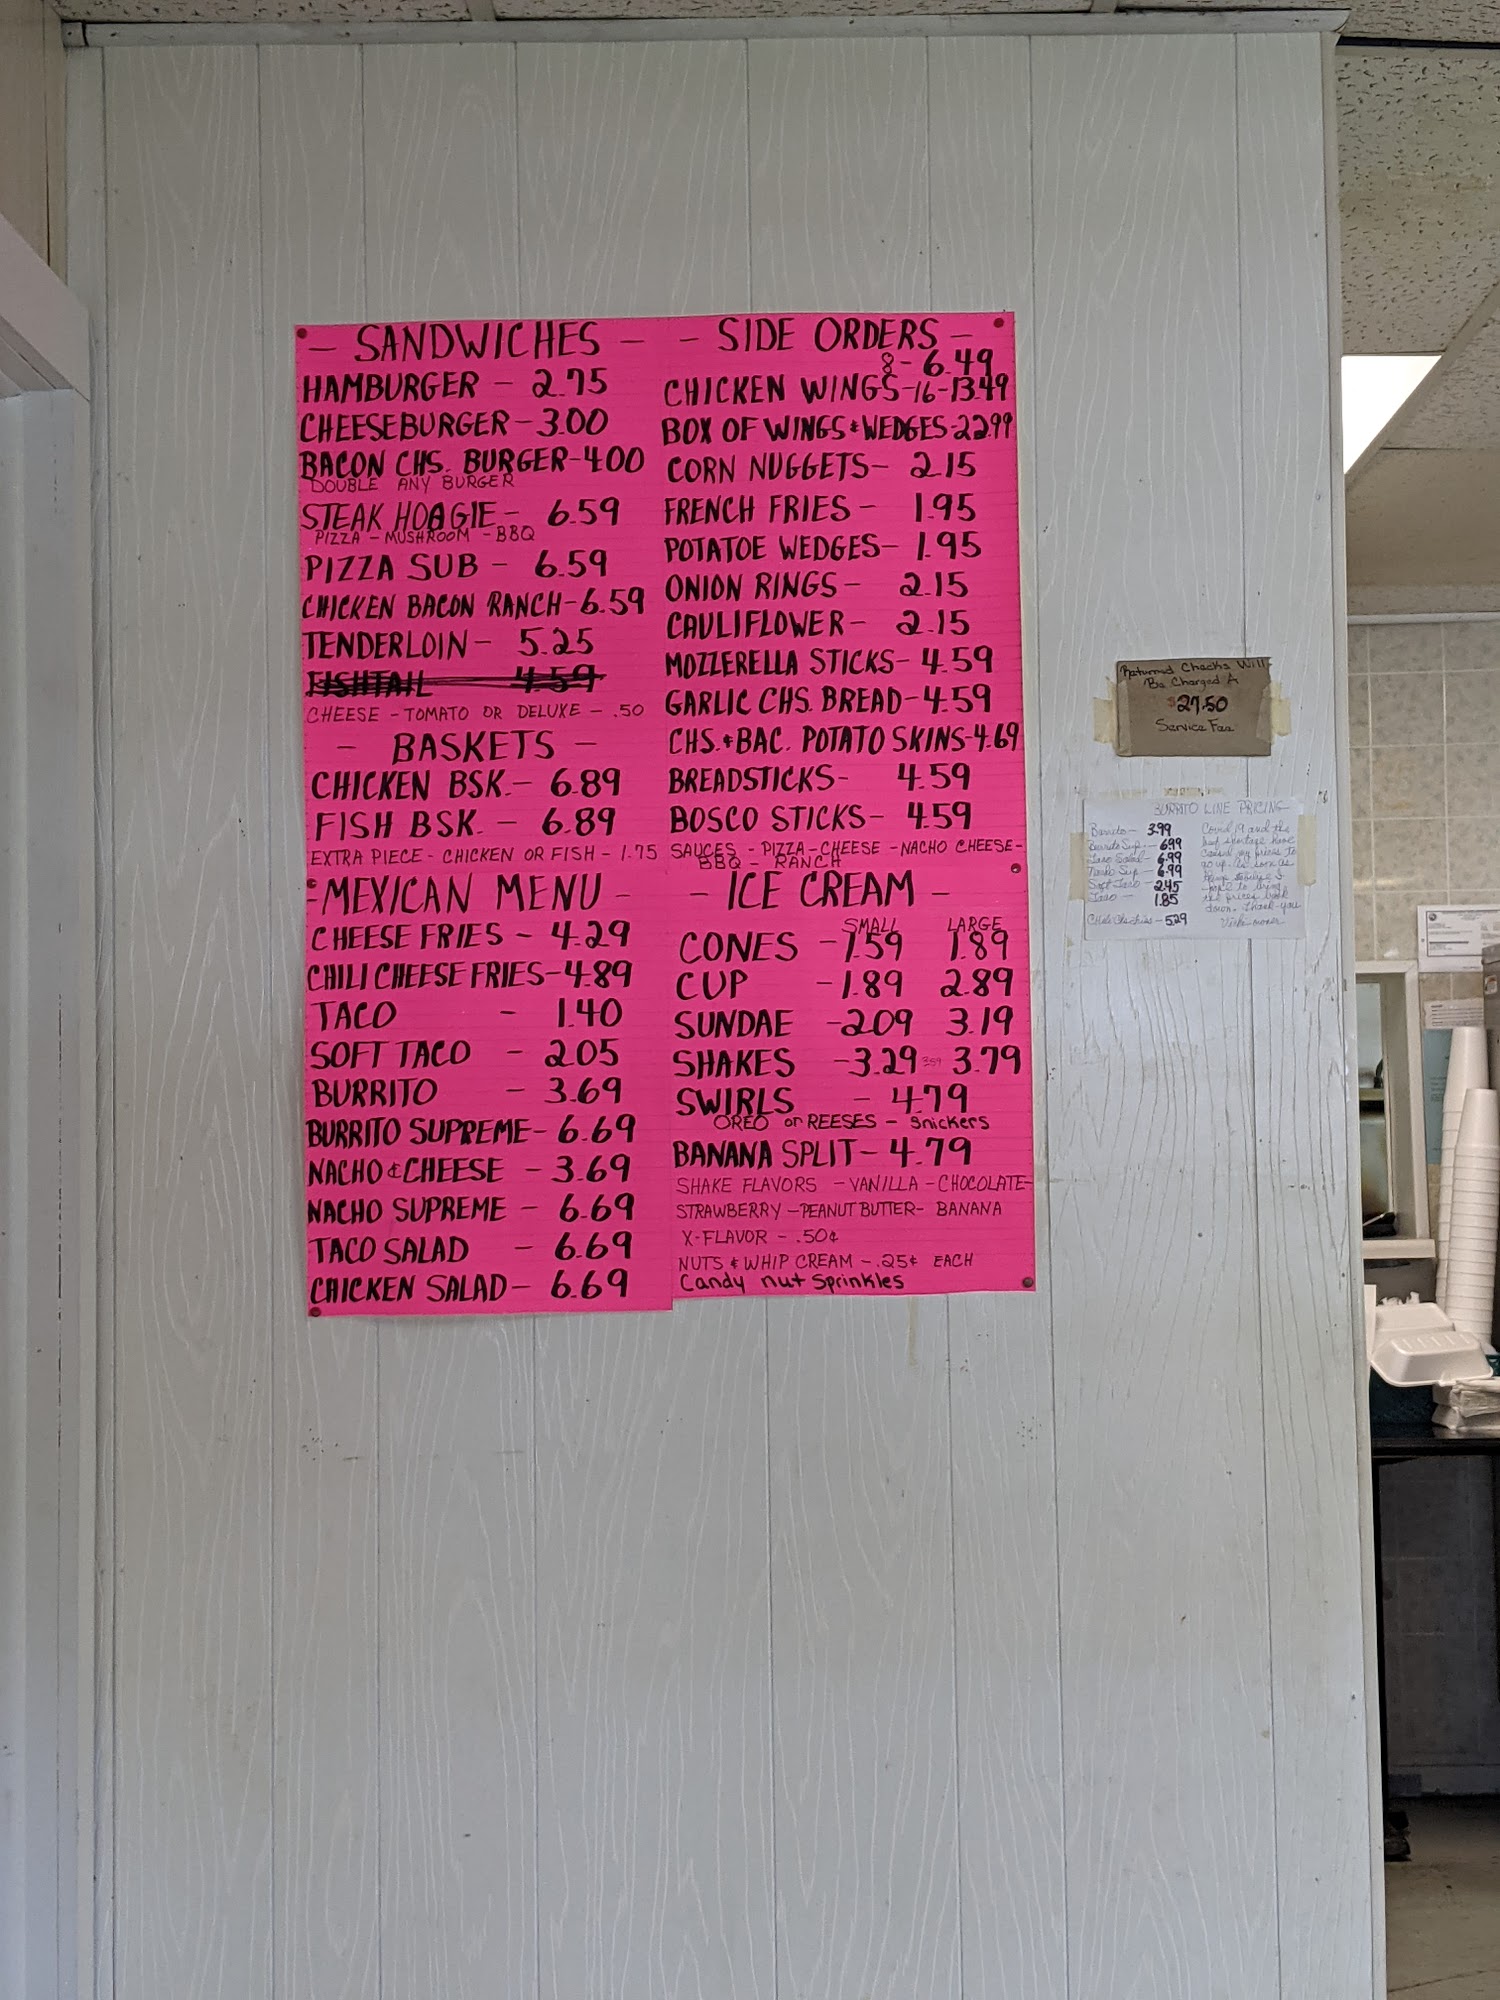 - SANDWICHES -
HAMBURGER - 2.75
CHEESEBURGER - 3.00
BACON CHS. BURGER - 4.00
DOUBLE ANY BURGER
STEAK HOAGIE - 6.59
PIZZA - MUSHROOM - BBQ
PIZZA SUB - 6.59
CHICKEN BACON RANCH - 6.59
TENDERLOIN - 5.25
FISHTAIL 4.59
CHEESE - TOMATO OR DELUXE - .50
- BASKETS -
CHICKEN BSK. - 6.89
FISH BSK. - 6.89
EXTRA PIECE - CHICKEN OR FISH - 1.75
- MEXICAN MENU -
CHEESE FRIES - 4.29
CHILI CHEESE FRIES - 4.89
TACO - 1.40
SOFT TACO - 2.05
BURRITO - 3.69
BURRITO SUPREME - 6.69
NACHO & CHEESE - 3.69
NACHO SUPREME - 6.69
TACO SALAD - 6.69
CHICKEN SALAD - 6.69
- SIDE ORDERS -
8 - 6.49
CHICKEN WINGS - 16 - 13.49
BOX OF WINGS & WEDGES - 22.99
CORN NUGGETS - 2.15
FRENCH FRIES - 1.95
POTATOE WEDGES - 1.95
ONION RINGS - 2.15
CAULIFLOWER - 2.15
MOZZERELLA STICKS - 4.59
GARLIC CHS. BREAD - 4.59
CHS. & BAC. POTATO SKINS - 4.69
BREADSTICKS - 4.59
BOSCO STICKS - 4.59
SAUCES - PIZZA - CHEESE - NACHO CHEESE -
BBQ - RANCH
- ICE CREAM -
SMALL LARGE
CONES - 1.59 1.89
CUP - 1.89 2.89
SUNDAE - 2.09 3.19
SHAKES - 3.29 3.59 3.79
SWIRLS - 4.79
OREO or REESES - Snickers
BANANA SPLIT - 4.79
SHAKE FLAVORS - VANILLA - CHOCOLATE -
STRAWBERRY - PEANUT BUTTER - BANANA
X-FLAVOR - .50¢
NUTS & WHIP CREAM - .25¢ EACH
Candy nut Sprinkles
Returned Checks Will
Be Charged A
$27.50
Service Fee
BURRITO LINE PRICING
Burrito - 3.99
Burrito Sup. - 6.99
Taco Salad - 6.99
Nacho Sup - 6.99
Soft Taco - 2.45
Taco - 1.85
Chili Chs Fries - 5.29
Covid 19 and the
beef shortage have
caused my prices to
go up. As soon as
things stabilize I
hope to bring
the prices back
down. Thank-you
owner